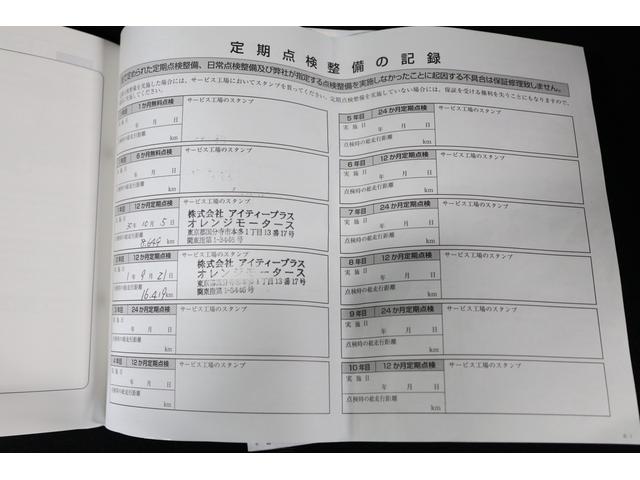 定期点検整備の記録
定められた定期点検整備、日常点検整備及び弊社が指定する点検整備を実施しなかったことに起因する不具合は保証修理致しません。
を実施した場合には、サービス工場においてスタンプを貰ってください。定期点検整備を実施していない場合には、保証を受ける権利を失うことにもなりますので、
実施してください。
1か月無料点検
サービス工場のスタンプ
年 月 日
km
6か月無料点検
サービス工場のスタンプ
年 月 日
km
12か月定期点検
サービス工場のスタンプ
30年 10月 5日
km
株式会社 アイティープラス
オレンジモータース
東京都国分寺市本多1丁目13番17号
関東指第1-5446号
12か月定期点検
サービス工場のスタンプ
1年 9月 21日
16,419km
株式会社 アイティープラス
オレンジモータース
東京都国分寺市本多1丁目13番17号
関東指第1-5446号
3年目 24か月定期点検
サービス工場のスタンプ
年 月 日
km
4年目 12か月定期点検
サービス工場のスタンプ
年 月 日
km
5年目 24か月定期点検
サービス工場のスタンプ
実施日
年 月 日
点検時の総走行距離
km
6年目 12か月定期点検
サービス工場のスタンプ
実施日
年 月 日
点検時の総走行距離
km
7年目 24か月定期点検
サービス工場のスタンプ
実施日
年 月 日
点検時の総走行距離
km
8年目 12か月定期点検
サービス工場のスタンプ
実施日
年 月 日
点検時の総走行距離
km
9年目 24か月定期点検
サービス工場のスタンプ
実施日
年 月 日
点検時の総走行距離
km
10年目 12か月定期点検
サービス工場のスタンプ
実施日
年 月 日
点検時の総走行距離
km